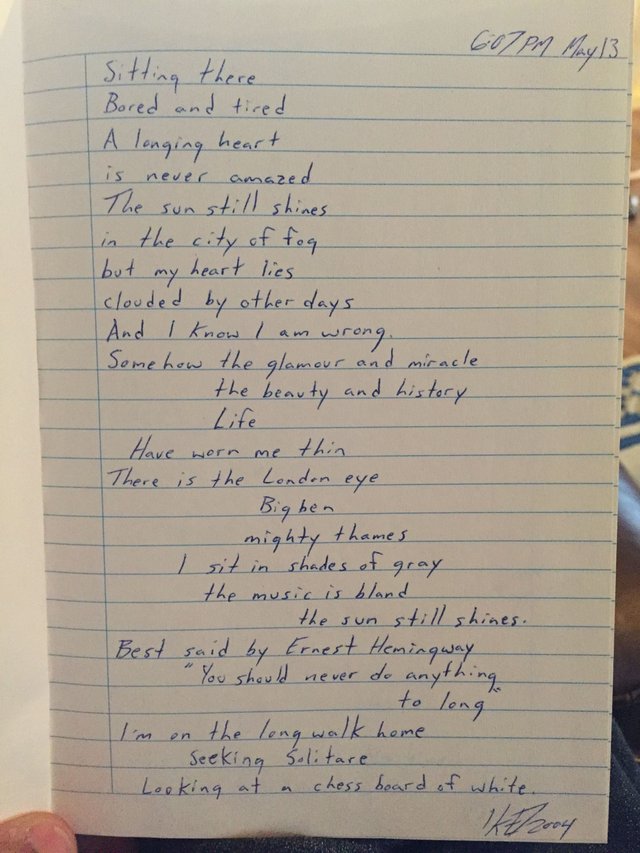 6:07 PM May 13
Sitting there
Bored and tired
A longing heart
is never amazed
The sun still shines
in the city of fog
but my heart lies
clouded by other days
And I know I am wrong.
Somehow the glamour and miracle
the beauty and history
Life
Have worn me thin
There is the London eye
Big ben
mighty thames
I sit in shades of gray
the music is bland
the sun still shines.
Best said by Ernest Hemingway
"You should never do anything
to long"
I'm on the long walk home
Seeking Solitare
Looking at a chess board of white.
2004